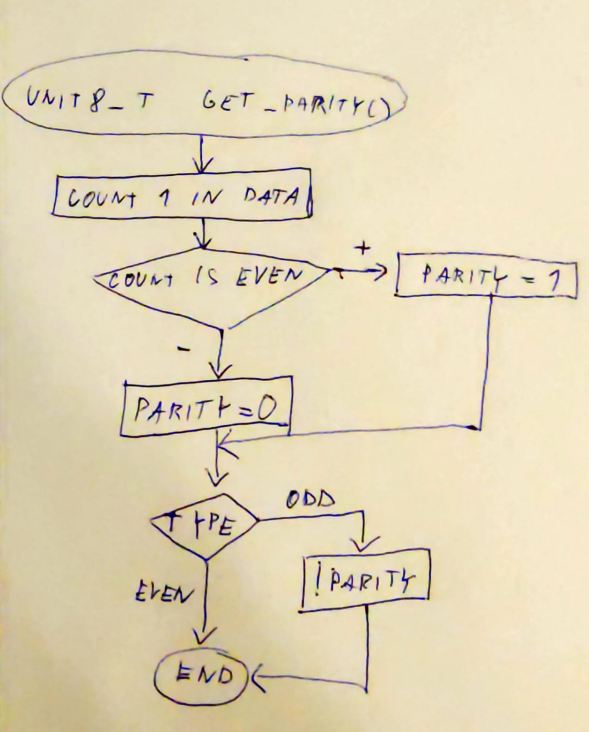 UNIT8_T GET_PARITY()
COUNT 1 IN DATA
COUNT IS EVEN
+
PARITY = 1
-
PARITY=0
TYPE
ODD
!PARITY
EVEN
END